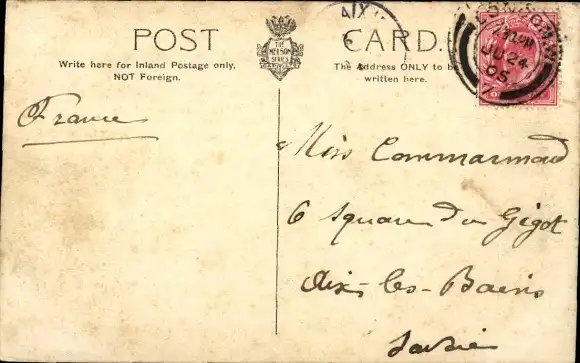 POST CARD.
THE
MEILSON
SERIES
Write here for Inland Postage only,
NOT Foreign.
The Address ONLY to be
written here.
AIX
LONDON
JU 24
05
France
Miss Commarmond
6 Square du Gigot
Aix-les-Bains
Savoie